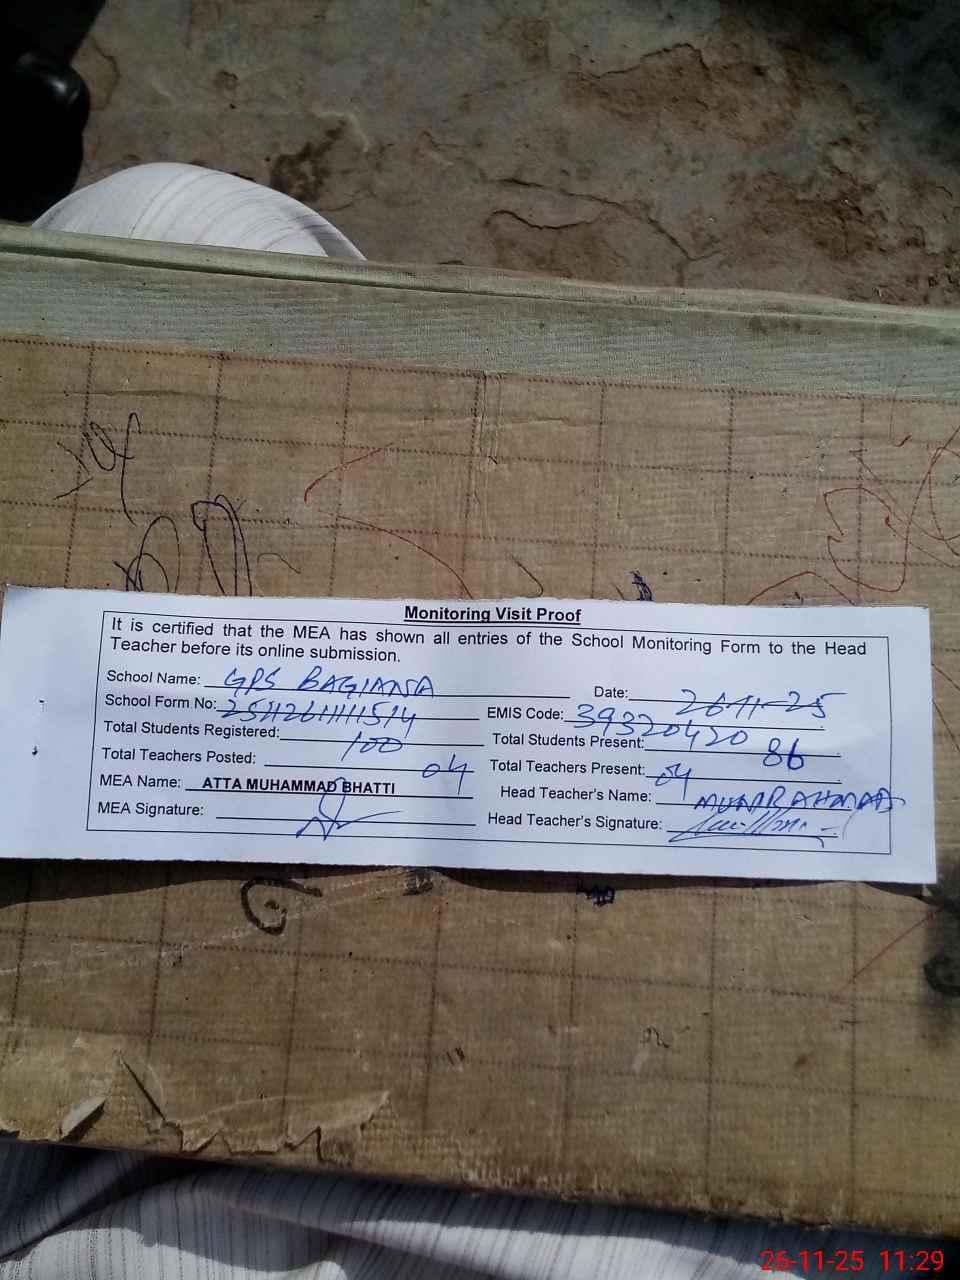 Monitoring Visit Proof
It is certified that the MEA has shown all entries of the School Monitoring Form to the Head
Teacher before its online submission.
School Name: GPS BAGIANA Date: 26-11-25
School Form No: EMIS Code: 39320420
Total Students Registered: 100 Total Students Present: 86
Total Teachers Posted: 04 Total Teachers Present: 04
MEA Name: ATTA MUHAMMAD BHATTI Head Teacher's Name:
MEA Signature: Head Teacher's Signature:
26-11-25 11:29